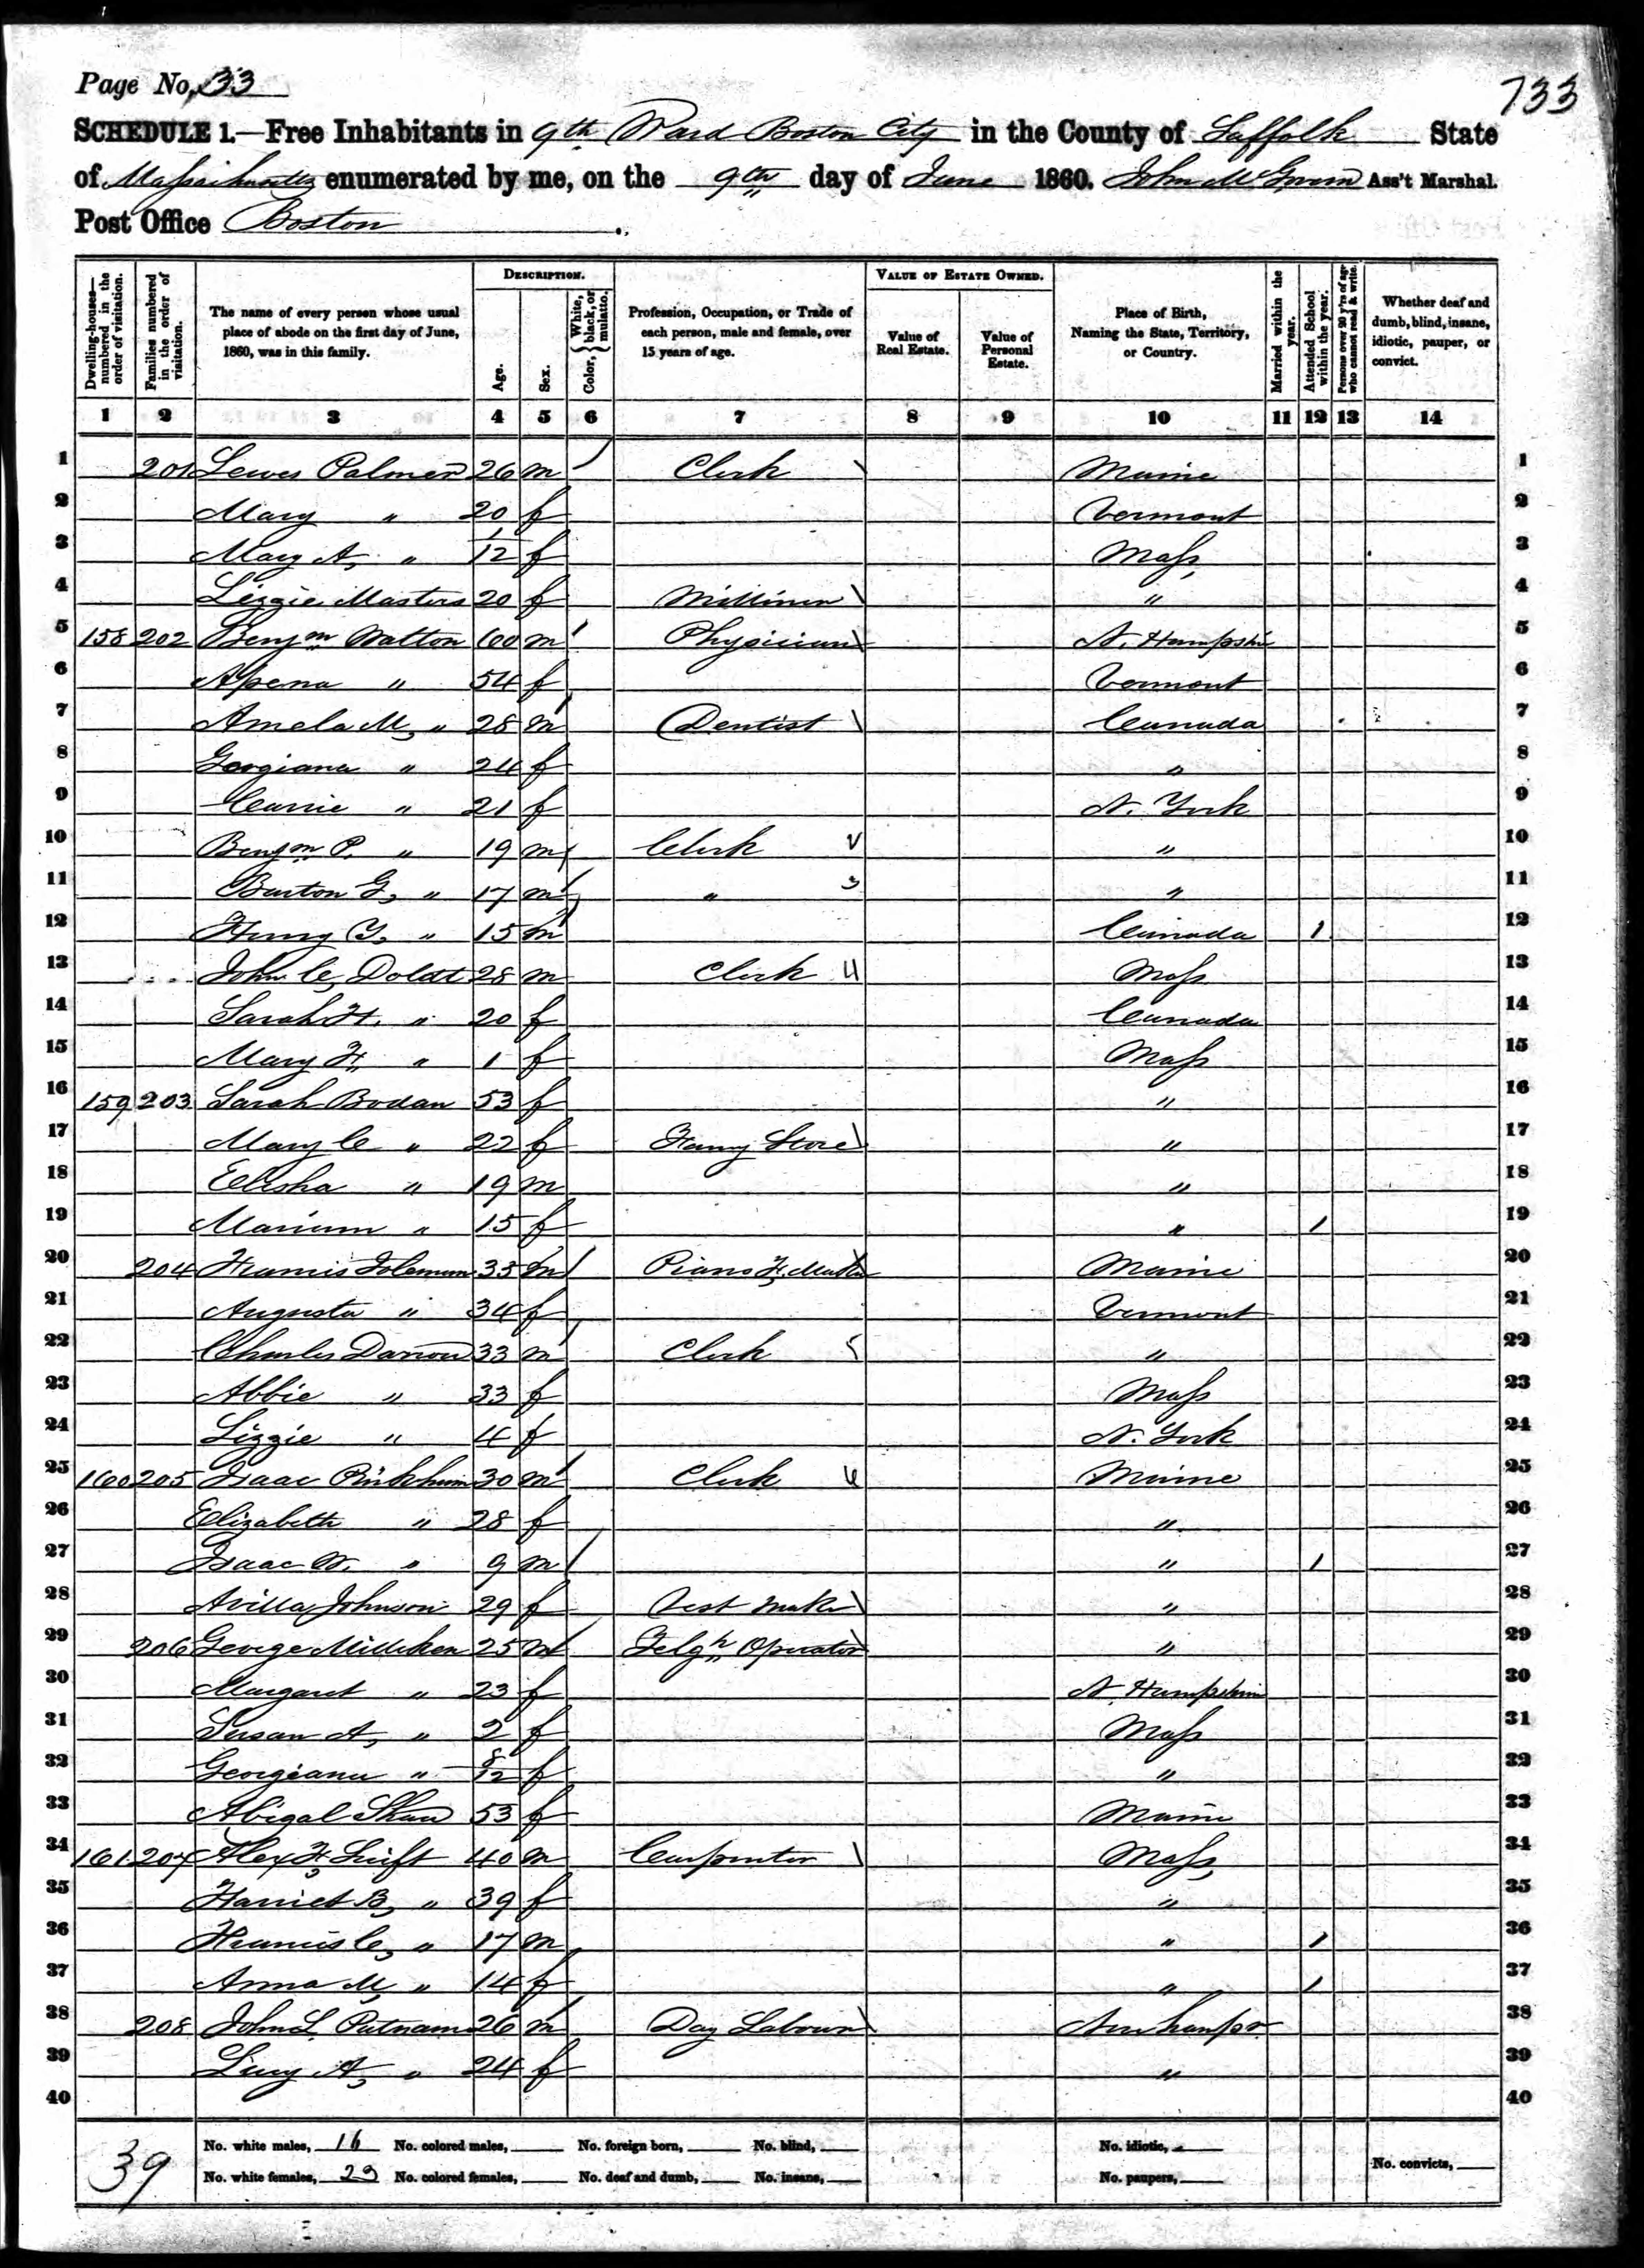 Page No. 33
733
SCHEDULE 1.—Free Inhabitants in 9th Ward Boston City in the County of Suffolk State
of Massachusetts enumerated by me, on the 9th day of June 1860. John Mc Ass't Marshal.
Post Office Boston
Dwelling-houses—numbered in the order of visitation.
Families numbered in the order of visitation.
The name of every person whose usual place of abode on the first day of June, 1860, was in this family.
DESCRIPTION.
Age.
Sex.
Color, { White, black, or mulatto.
Profession, Occupation, or Trade of each person, male and female, over 15 years of age.
VALUE OF ESTATE OWNED.
Value of Real Estate.
Value of Personal Estate.
Place of Birth, Naming the State, Territory, or Country.
Married within the year.
Attended School within the year.
Persons over 20 y'rs of age who cannot read & write.
Whether deaf and dumb, blind, insane, idiotic, pauper, or convict.
1 2 3 4 5 6 7 8 9 10 11 12 13 14
1 201 Lewes Palmer 26 m Clerk Maine 1
2 Mary " 20 f Vermont 2
3 Mary A, " 1/12 f Mass, 3
4 Lizzie Masters 20 f Milliner " 4
5 158 202 Benjm Walton 60 m Physician N. Hampshire 5
6 " 54 f Vermont 6
7 Amela M, " 28 m Dentist Canada 7
8 Georgiana " 24 f " 8
9 Carrie " 21 f N. York 9
10 Benjm P. " 19 m Clerk " 10
11 Burton G, " 17 m " " 11
12 Henry Y, " 15 m Canada 1 12
13 John C, Doldt 28 m Clerk Mass 13
14 Sarah H. " 20 f Canada 14
15 Mary H, " 1 f Mass 15
16 159 203 Sarah Bodan 53 f " 16
17 Mary C " 22 f Fancy Store " 17
18 Elisha " 19 m " 18
19 Marium " 15 f " 1 19
20 204 Francis 35 m Piano F. Maker Maine 20
21 Augusta " 34 f Vermont 21
22 Charles Darrow 33 m Clerk " 22
23 Abbie " 33 f Mass 23
24 Lizzie " 4 f N. York 24
25 160 205 Isaac Pinkham 30 m Clerk Maine 25
26 Elizabeth " 28 f " 26
27 Isaac W. " 9 m " 1 27
28 Avilla Johnson 29 f Vest Maker " 28
29 206 George Milliken 25 m Telgh Operator " 29
30 Margaret " 23 f N. Hampshire 30
31 Susan A, " 2 f Mass 31
32 Georgeanna " 8/12 f " 32
33 Abigal Shaw 53 f Maine 33
34 161 207 Alex F, Swift 40 m Carpenter Mass, 34
35 Harriet B, " 39 f " 35
36 Francis C, " 17 m " 1 36
37 Anna M, " 14 f " 1 37
38 208 John L. Putnam 26 m Day Labour 38
39 Lucy A, " 24 f " 39
40 40
39
No. white males, 16 No. colored males, No. foreign born, No. blind, No. idiotic,
No. white females, 23 No. colored females, No. deaf and dumb, No. insane, No. paupers, No. convicts,